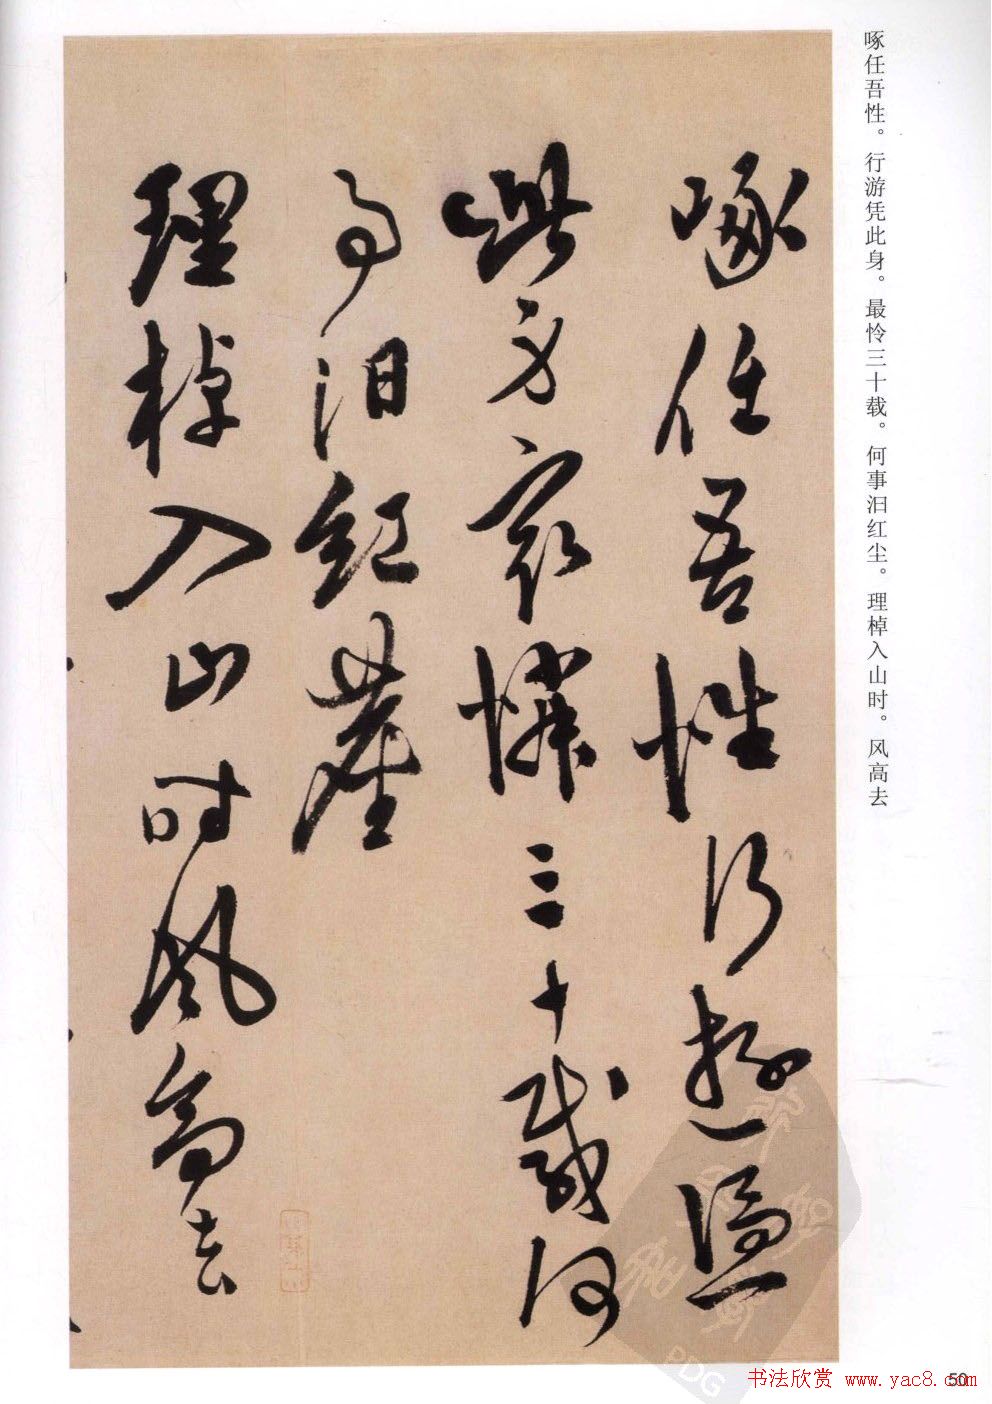 啄任吾性。行游凭此身。最怜三十载。何事汩红尘。理棹入山时。风高去
啄任吾性行遊憑
此身最憐三十載何
事汩紅塵
理棹入山时風高去
PDG
50
书法欣赏 www.yac8.com